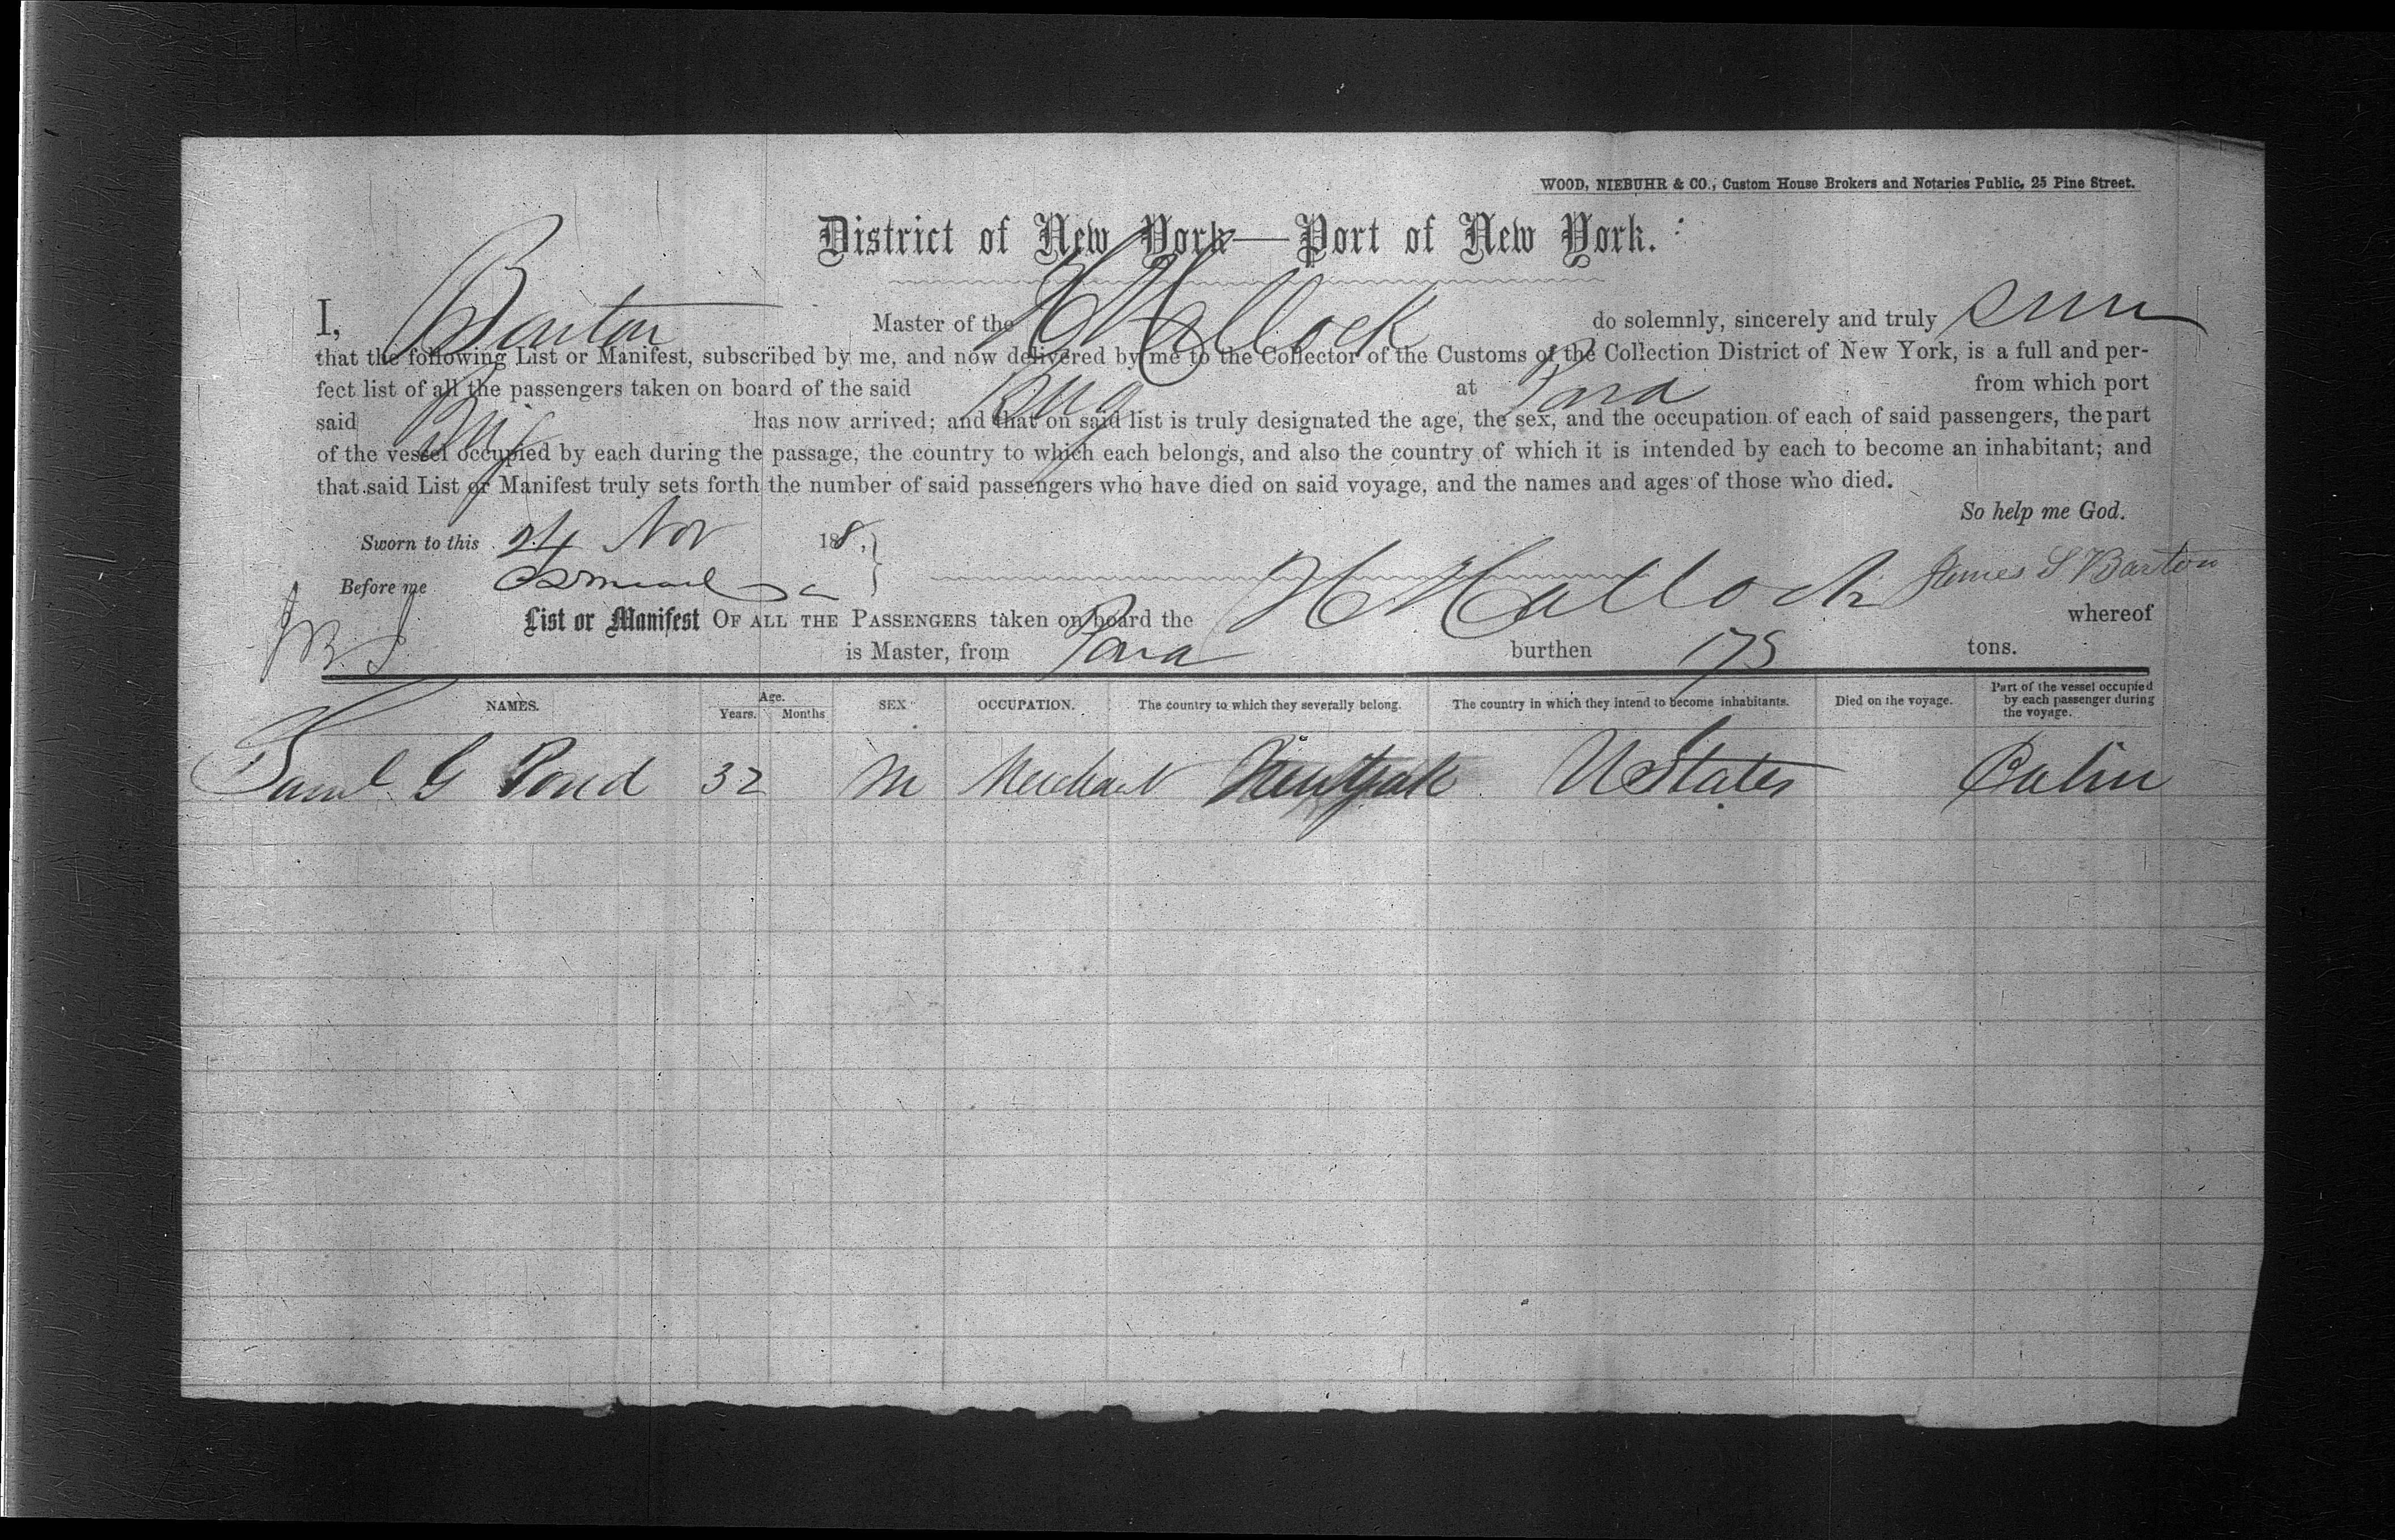 WOOD, NIEBUHR & CO., Custom House Brokers and Notaries Public, 25 Pine Street.
District of New York—Port of New York.
I, Barton Master of the H Hallock do solemnly, sincerely and truly
that the following List or Manifest, subscribed by me, and now delivered by me to the Collector of the Customs of the Collection District of New York, is a full and per-
fect list of all the passengers taken on board of the said Brig at Para from which port
said Brig has now arrived; and that on said list is truly designated the age, the sex, and the occupation of each of said passengers, the part
of the vessel occupied by each during the passage, the country to which each belongs, and also the country of which it is intended by each to become an inhabitant; and
that said List or Manifest truly sets forth the number of said passengers who have died on said voyage, and the names and ages of those who died.
So help me God.
Sworn to this 24 Nov 188
Before me James S Barton
List or Manifest OF ALL THE PASSENGERS taken on board the H Hallock whereof
is Master, from Para burthen 175 tons.
NAMES. Age. Years. Months SEX OCCUPATION. The country to which they severally belong. The country in which they intend to become inhabitants. Died on the voyage. Part of the vessel occupied by each passenger during the voyage.
Saml G Pond 32 M Merchant U States Cabin